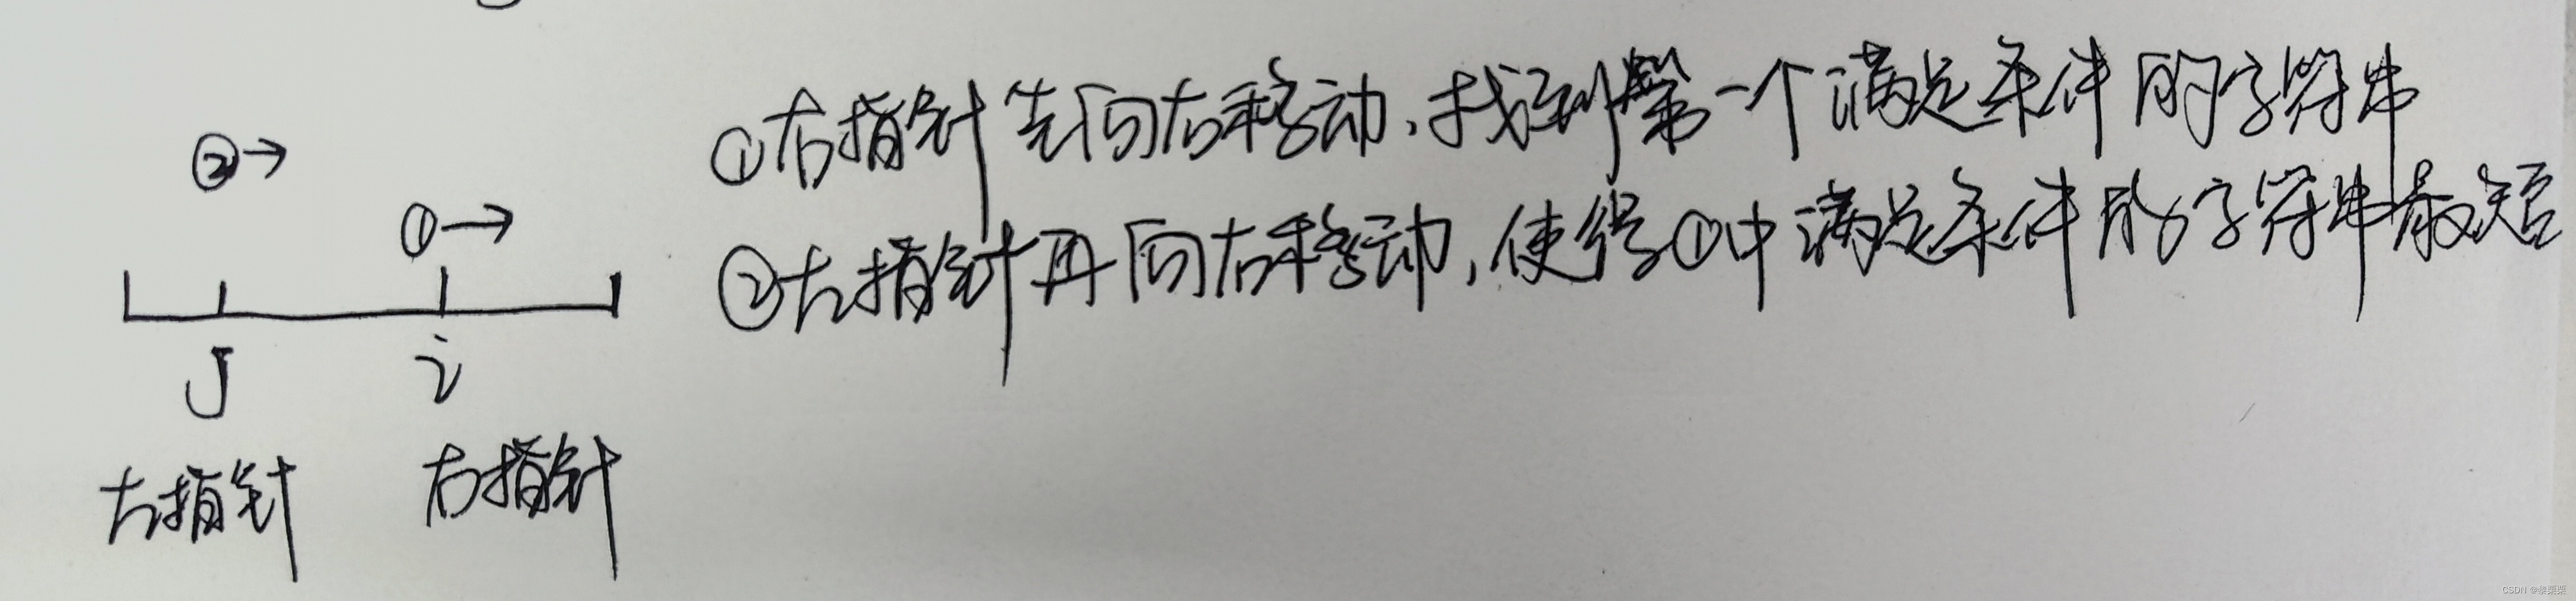 ①右指针先向右移动,找到第一个满足条件的字符串
②→
①→
②左指针再向右移动,使得①中满足条件的字符串最短
j i
左指针 右指针
CSDN @黎栗栗